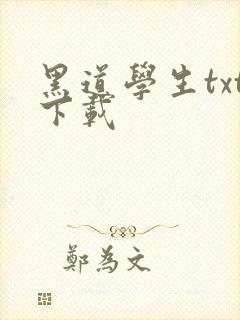 黑道學生txt
下載
鄭為文